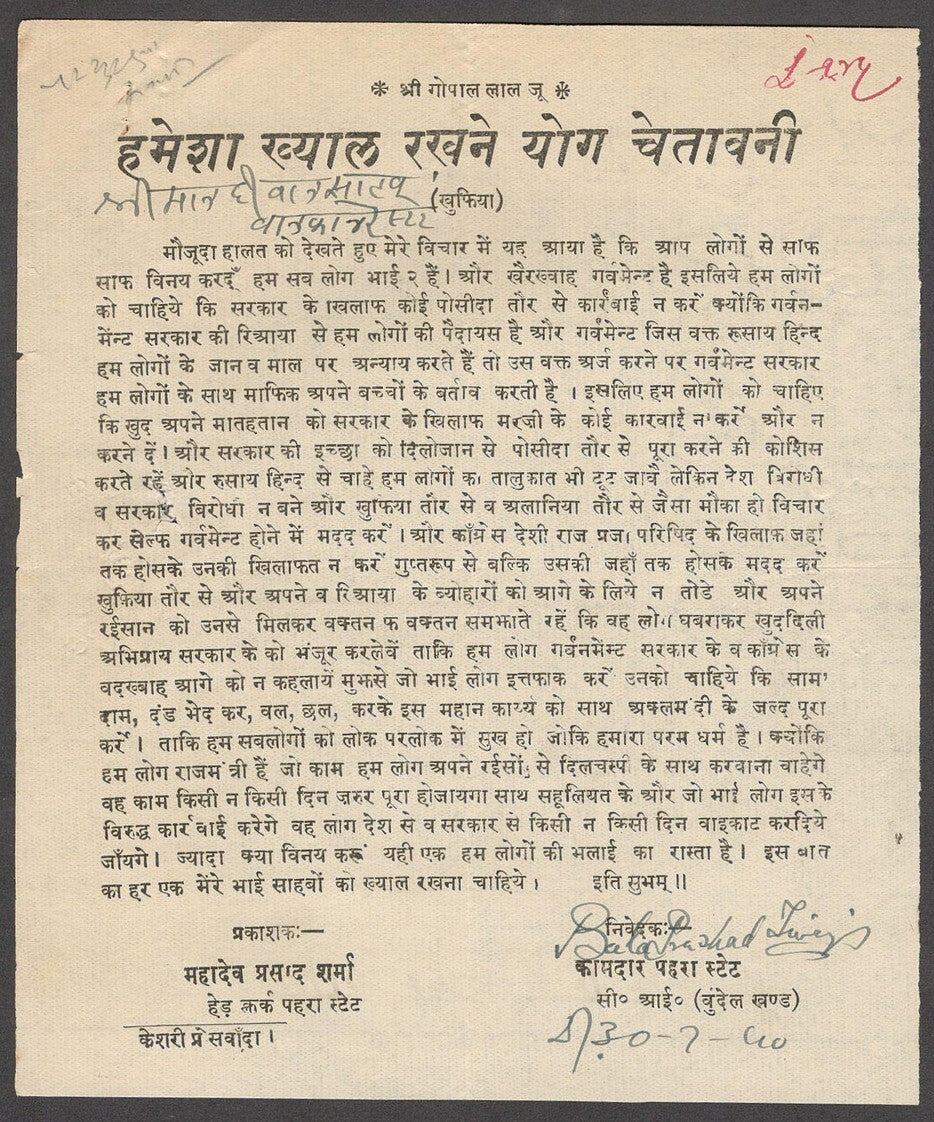 ❋ श्री गोपाल लाल जू ❋
हमेशा ख्याल रखने योग चेतावनी
श्रीमान दीवान साहब
(खुफिया)
मौजूदा हालत को देखते हुए मेरे विचार में यह आया है कि आप लोगों से साफ
साफ विनय करदूँ हम सब लोग भाई २ हैं। और खैरख्वाह गर्वमेन्ट है इसलिये हम लोगों
को चाहिये कि सरकार के खिलाफ कोई पोसीदा तौर से कार्रबाई न करें क्योंकि गर्वन–
मेंन्ट सरकार की रिआया से हम लोगों की पैदायस है और गर्वमेन्ट जिस वक्त रूसाय हिन्द
हम लोगों के जान व माल पर अन्याय करते हैं तो उस वक्त अर्ज करने पर गर्वमेन्ट सरकार
हम लोगों के साथ माफिक अपने बच्चों के बर्ताव करती है । इसलिए हम लोगों को चाहिए
कि खुद अपने मातहतान को सरकार के खिलाफ मरजी के कोई कारवाई न करें और न
करने दें। और सरकार की इच्छा को दिलोजान से पोसीदा तौर से पूरा करने की कोशिस
करते रहें और रुसाय हिन्द से चाहे हम लोगों का तालुकात भी टूट जावै लेकिन देश बिरोधी
व सरकार बिरोधी न बने और खुफिया तौर से व अलानिया तौर से जैसा मौका हो विचार
कर सेल्फ गर्वमेन्ट होने में मदद करें । और काँग्रेस देशी राज प्रजा परिषिद के खिलाफ जहां
तक होसके उनकी खिलाफत न करें गुप्तरूप से बल्कि उसकी जहाँ तक होसके मदद करें
खुफिया तौर से और अपने व रिआया के ब्योहारों को आगे के लिये न तोडे और अपने
रईसान को उनसे मिलकर वक्तन फ वक्तन समझाते रहें कि वह लोग घबराकर खुददिली
अभिप्राय सरकार के को भंजूर करलेवें ताकि हम लोग गर्वनमेंन्ट सरकार के व काँग्रेस के
वदख्बाह आगे को न कहलायें मुझसे जो भाई लोग इत्तफाक करें उनको चाहिये कि साम'
दाम, दंड भेद कर, वल, छल, करके इस महान कार्य्य को साथ अक्लमंदी के जल्द पूरा
करें । ताकि हम सबलोगों को लोक परलोक में सुख हो जोकि हमारा परम धर्म है । क्योंकि
हम लोग राजमंत्री हैं जो काम हम लोग अपने रईसों से दिलचस्पी के साथ करवाना चाहेगे
वह काम किसी न किसी दिन जरुर पूरा होजायगा साथ सहूलियत के और जो भाई लोग इसके
विरुद्ध कार्रवाई करेगे वह लोग देश से व सरकार से किसी न किसी दिन वाइकाट करदिये
जाँयगे । ज्यादा क्या विनय करूं यही एक हम लोगों की भलाई का रास्ता है । इस बात
का हर एक मेंरे भाई साहबों को ख्याल रखना चाहिये । इति सुभम् ॥
प्रकाशकः— निवेदकः—
Bala Prashad
महादेव प्रसाद शर्मा कामदार पहरा स्टेट
हेड़ क्लर्क पहरा स्टेट सी० आई० (वुंदेल खण्ड)
केशरी प्रेस वाँदा । 30-7-40